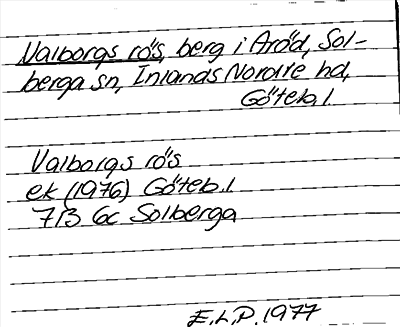 Valborgs rö's, berg i Aröd, Sol-
berga sn, Inlands Nordre hd,
Göteb.l.
Valborgs rö's
ek (1976) Göteb.l
7B 6c Solberga
E.L.P. 1977